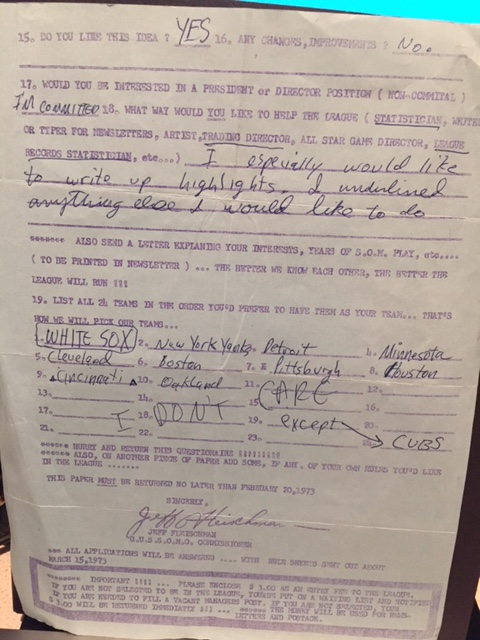 15. DO YOU LIKE THIS IDEA ? YES 16. ANY CHANGES, IMPROVEMENTS ? No.
17. WOULD YOU BE INTERESTED IN A PRESIDENT or DIRECTOR POSITION ( NON-COMMITAL )
I'M COMMITED 18. WHAT WAY WOULD YOU LIKE TO HELP THE LEAGUE ( STATISTICIAN, WRITER
OR TYPER FOR NEWSLETTERS, ARTIST, TRADING DIRECTOR, ALL STAR GAME DIRECTOR, LEAGUE
RECORDS STATISTICIAN, etc...) I especially would like
to write up highlights. I underlined
anything else I would like to do
******* ALSO SEND A LETTER EXPLANING YOUR INTERESTS, YEARS OF S.O.M. PLAY, etc....
( TO BE PRINTED IN NEWSLETTER ) ... THE BETTER WE KNOW EACH OTHER, THE BETTER THE
LEAGUE WILL RUN !!!
19. LIST ALL 24 TEAMS IN THE ORDER YOU'D PREFER TO HAVE THEM AS YOUR TEAM... THAT'S
HOW WE WILL PICK OUR TEAMS...
WHITE SOX 2. New York Yanks 3. Detroit 4. Minnesota
5. Cleveland 6. Boston 7. Pittsburgh 8. Houston
9. Cincinnati 10. Oakland 11. 12.
13. 14. 15. CARE 16.
17. I 18. DON'T 19. except 20.
21. 22. 23. 24. CUBS
****** HURRY AND RETURN THIS QUESTIONAIRE !!!!!!!!!
****** ALSO, ON ANOTHER PIECE OF PAPER ADD SOME, IF ANY, OF YOUR OWN RULES YOU'D LIKE
IN THE LEAGUE .......
THIS PAPER MUST BE RETURNED NO LATER THAN FEBRUARY 20, 1973
SINCERELY,
JEFF FLEISCHMAN
COMMISSIONER
*** ALL APPLICATIONS WILL BE ANSWERED .... WITH RULE SHEETS SENT OUT ABOUT
MARCH 15, 1973
******* IMPORTANT !!!! ... PLEASE ENCLOSE $ 3.00 AS AN ENTER FEE TO THE LEAGUE.
IF YOU ARE NOT SELECTED TO BE IN THE LEAGUE, YOU'RE PUT ON A WAITING LIST AND NOTIFIED
IF YOU ARE NEEDED TO FILL A VACANT MANAGERS POST. IF YOU ARE NOT SELECTED, YOUR
3.00 WILL BE RETURNED IMMEDIATELY !!! ... THE MONEY WILL BE USED FOR
LETTERS AND POSTAGE.